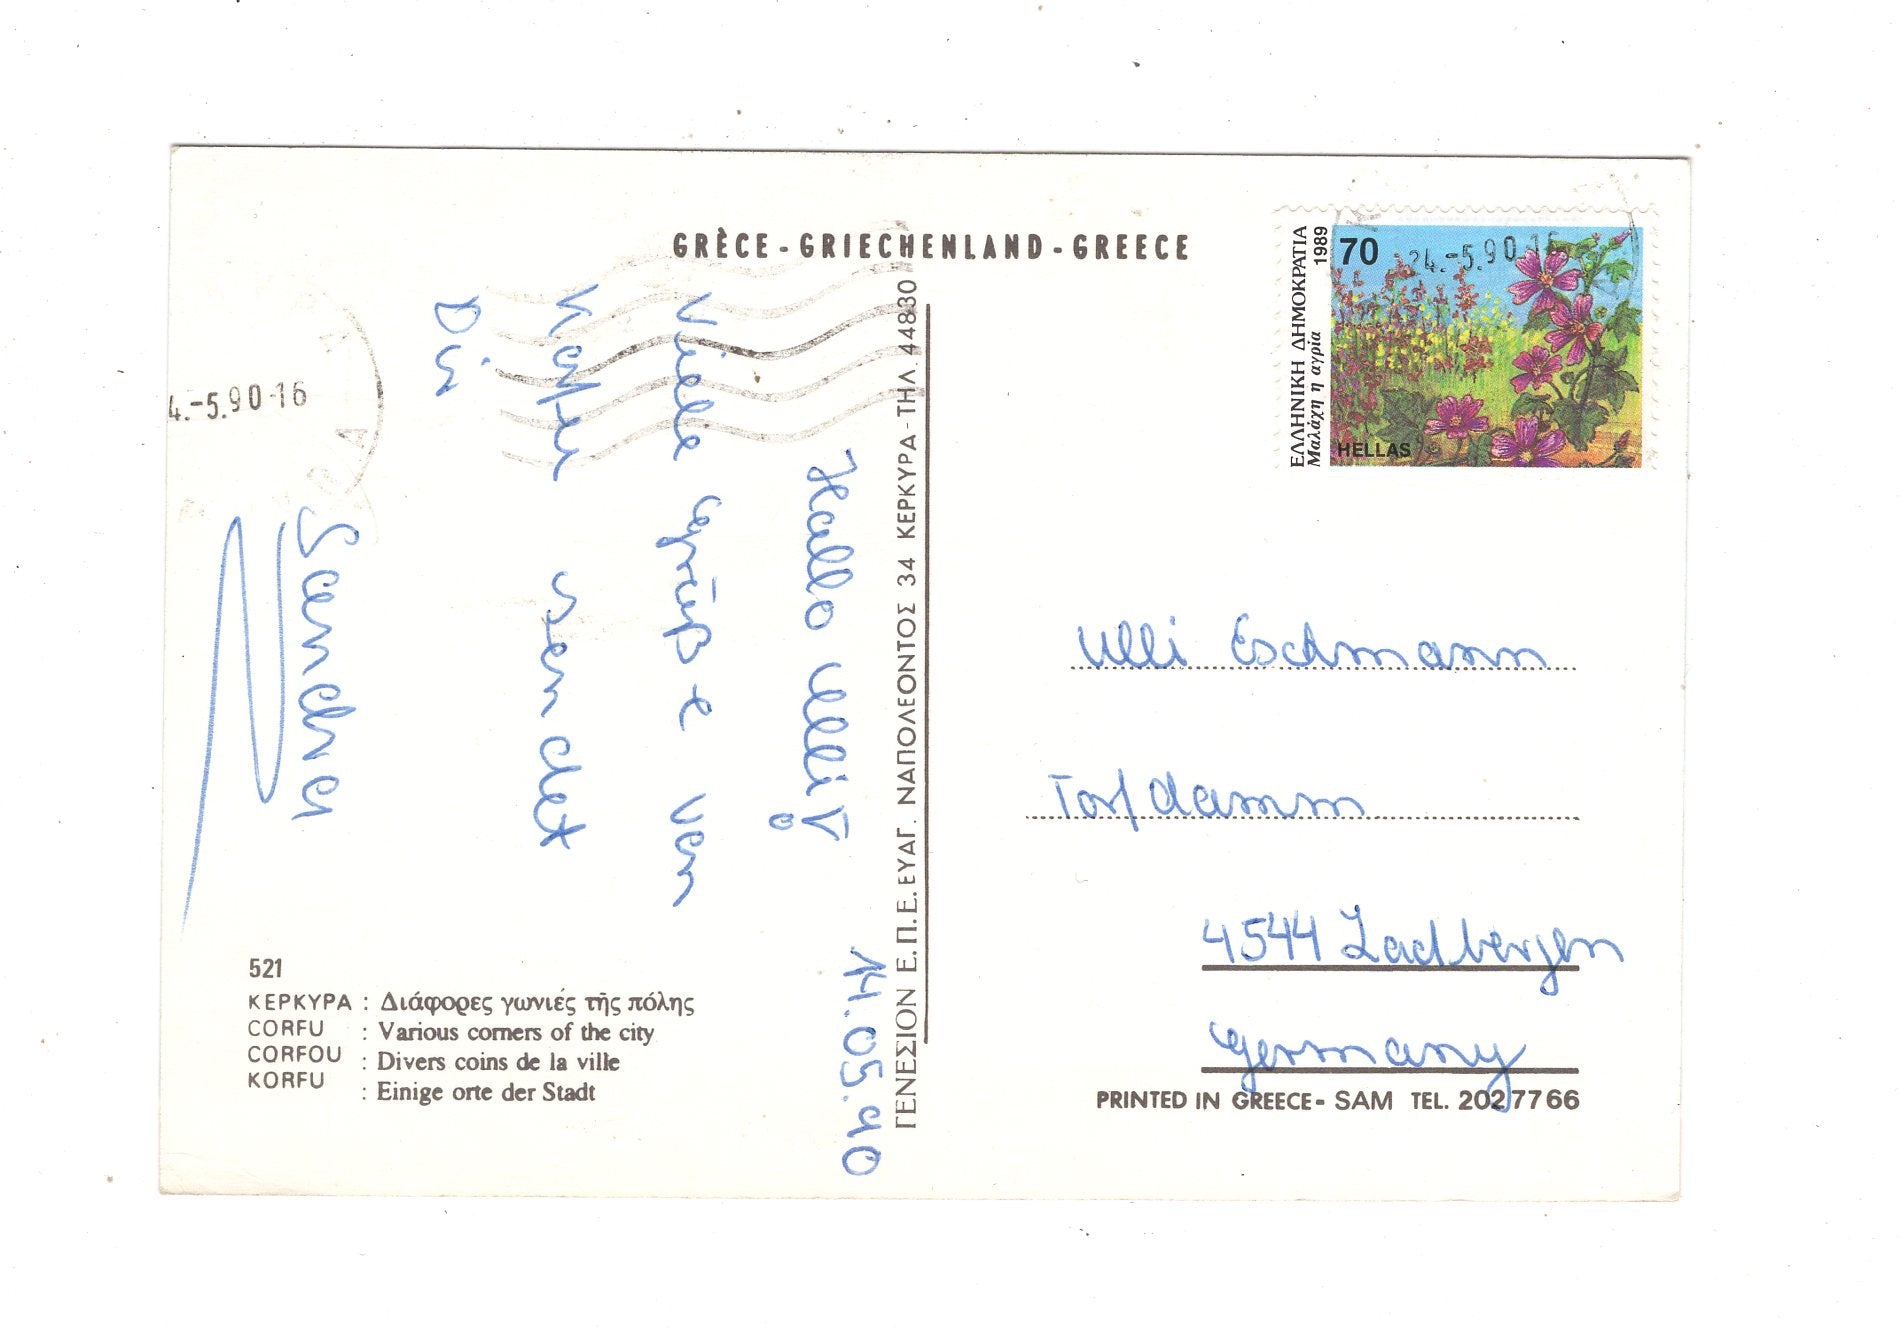 GRÈCE - GRIECHENLAND - GREECE
14.05.90
Hallo Ulli!
Viele Grüße von
Korfu sendet
Dir
Sandra
4.-5.90-16
521
ΚΕΡΚΥΡΑ : Διάφορες γωνιές τῆς πόλης
CORFU : Various corners of the city
CORFOU : Divers coins de la ville
KORFU : Einige orte der Stadt
ΓΕΝΕΣΙΟΝ Ε.Π.Ε. ΕΥΑΓ. ΝΑΠΟΛΕΟΝΤΟΣ 34 ΚΕΡΚΥΡΑ - ΤΗΛ. 44830
ΕΛΛΗΝΙΚΗ ΔΗΜΟΚΡΑΤΙΑ
Μαλάχη η αγρία 1989
70
24.-5.90-16
HELLAS
Ulli Eschmann
Torfdamm
4544 Ladbergen
Germany
PRINTED IN GREECE - SAM TEL. 2027766